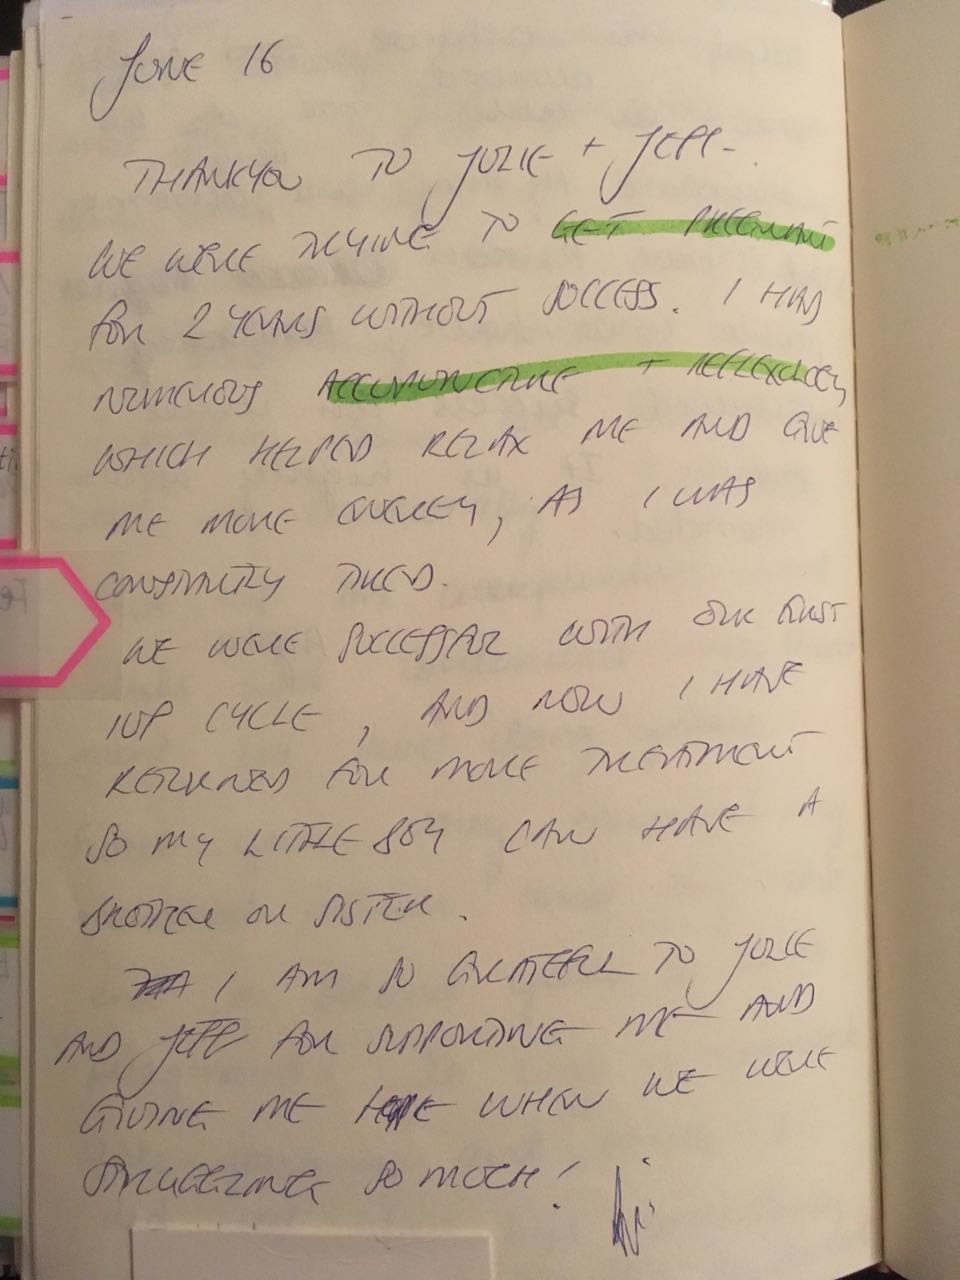 JUNE 16
THANKYOU TO JULIE + JEFF -
WE WERE TRYING TO GET PREGNANT
FOR 2 YEARS WITHOUT SUCCESS. I HAD
NUMEROUS ACCUPUNCTURE + REFLEXOLOGY
WHICH HELPED RELAX ME AND GIVE
ME MORE ENERGY, AS I WAS
CONSTANTLY TIRED.
WE WERE SUCCESSFUL WITH OUR FIRST
IVF CYCLE, AND NOW I HAVE
RETURNED FOR MORE TREATMENT
SO MY LITTLE BOY CAN HAVE A
BROTHER OR SISTER.
I AM SO GRATEFUL TO JULIE
AND JEFF FOR SUPPORTING ME AND
GIVING ME HOPE WHEN WE WERE
STRUGGLING SO MUCH!